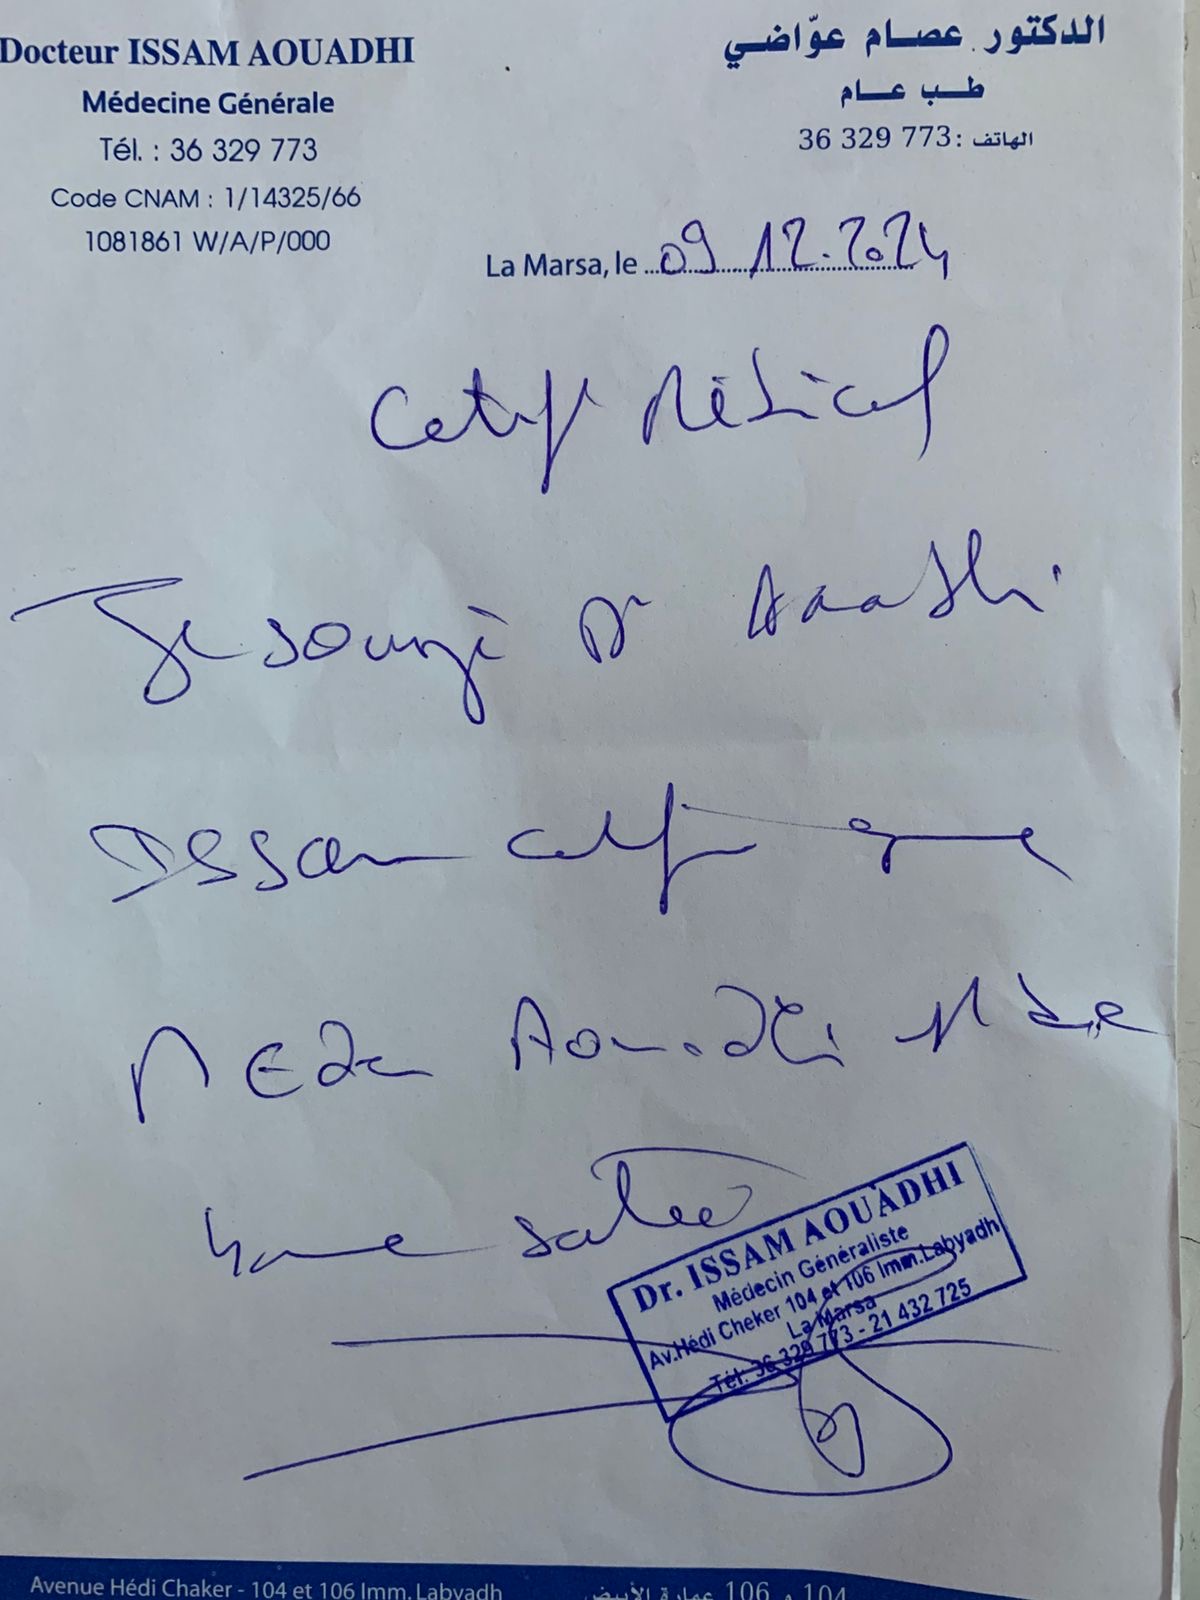 Docteur ISSAM AOUADHI
Médecine Générale
Tél. : 36 329 773
Code CNAM : 1/14325/66
1081861 W/A/P/000
الدكتور عصام عوّاضي
طب عام
الهاتف : 36 329 773
La Marsa, le 09 12.2024
Certif Médical
Je soussigné Dr Aouadhi
Issam certifie que
Aouadhi
bonne santé
Dr. ISSAM AOUADHI
Médecin Généraliste
Av.Hédi Cheker 104 et 106 Imm.Labyadh
La Marsa
Tél: 36 329 773 - 21 432 725
Avenue Hédi Chaker - 104 et 106 Imm. Labyadh
104 و 106 عمارة الأبيض